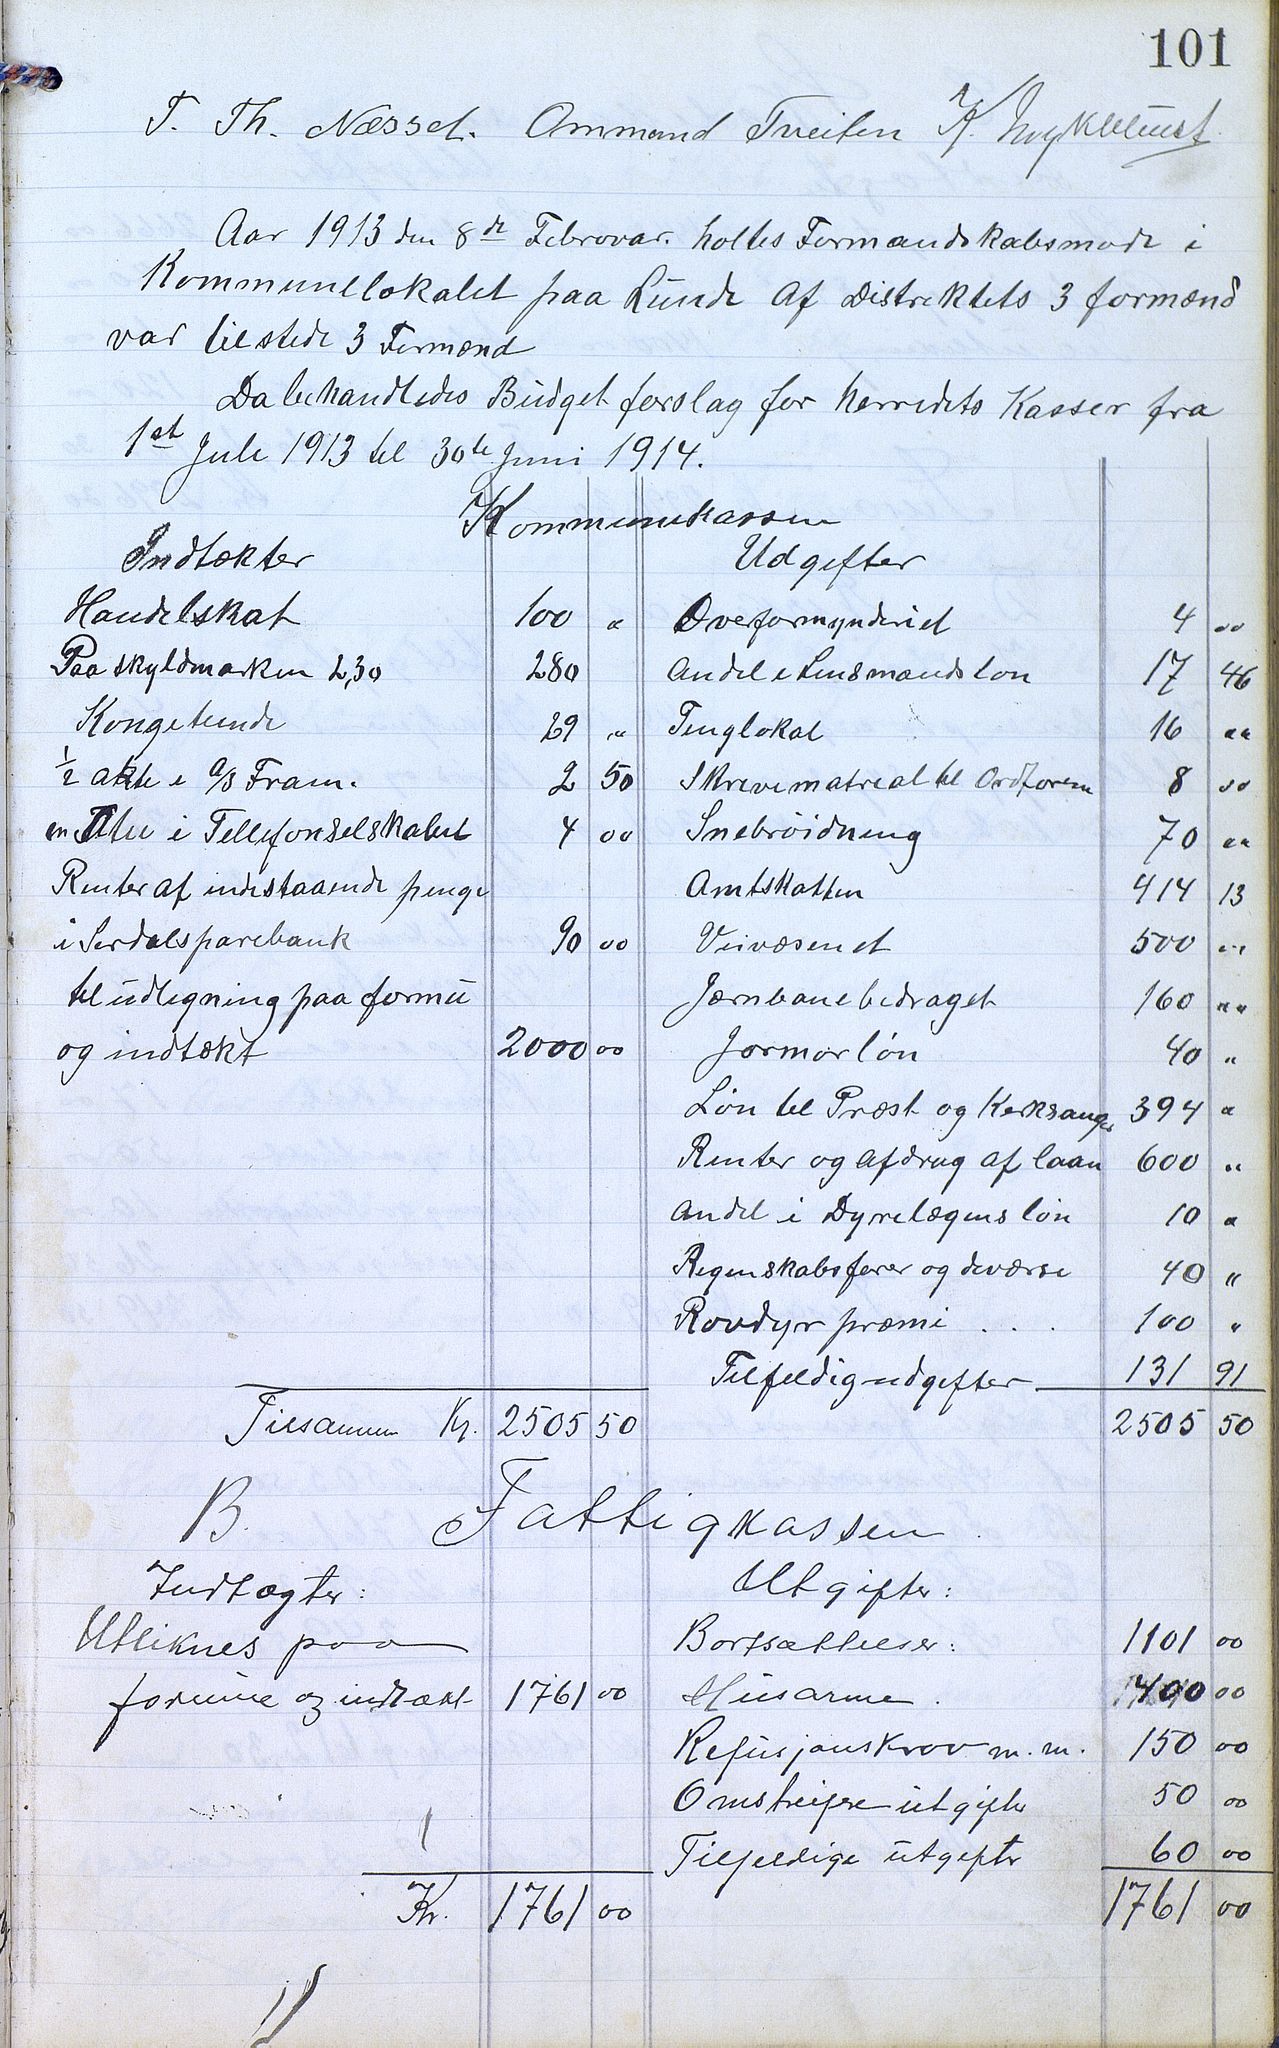 101
T. Th. Næsset. Ommund Tveiten K. Myklebust
Aar 1913 den 8de Februar. holtes Formandskabsmøde i
Kommunelokalet paa Lunde Af Distriktets 3 formænd
var tilstede 3 Formænd
Da behandledes Budget forslag for Herredets Kasser fra
1st Juli 1913 til 30te Juni 1914.
Kommunekassen
Indtækter Udgifter
Handelskat 100 " Overformynderiet 4 00
Paa skyldmarken 2,30 280 Andel i Lensmandsløn 17 46
Kongetiende 29 " Tinglokal 16 ""
1/2 aktie i A/S Fram. 2 50 Skrivematreal til Ordforer 8 00
en Aktie i Tellefonselskabet 4 00 Snebrøidning 70 ""
Renter af indestaaende penge Amtskatten 414 13
i Serdalsparebank 90 00 Veivæsenet 500 ""
til udligning paa formu Jærnbanebedraget 160 ""
og indtækt 2000 00 Jormorløn 40 "
Løn til Præst og Kerksanger 394 "
Renter og afdrag af laan 600 "
Andel i Dyrelægens løn 10 "
Regnskabsfører og deværse 40 "
Rovdyr præmi . . . 100 "
Tilfeldig udgifter 131 91
Tilsammen Kr. 2505 50 2505 50
B. Fattigkassen
Indtægter: Utgifter:
Utliknes paa Bortsættelser: 1101 00
formue og indtækt 1761 00 Husarme . 400 00
Refusjonskrav m.m. 150 00
Omstreifere utgifter 50 00
Tilfeldige utgifter 60 00
Kr. 1761 00 1761 00